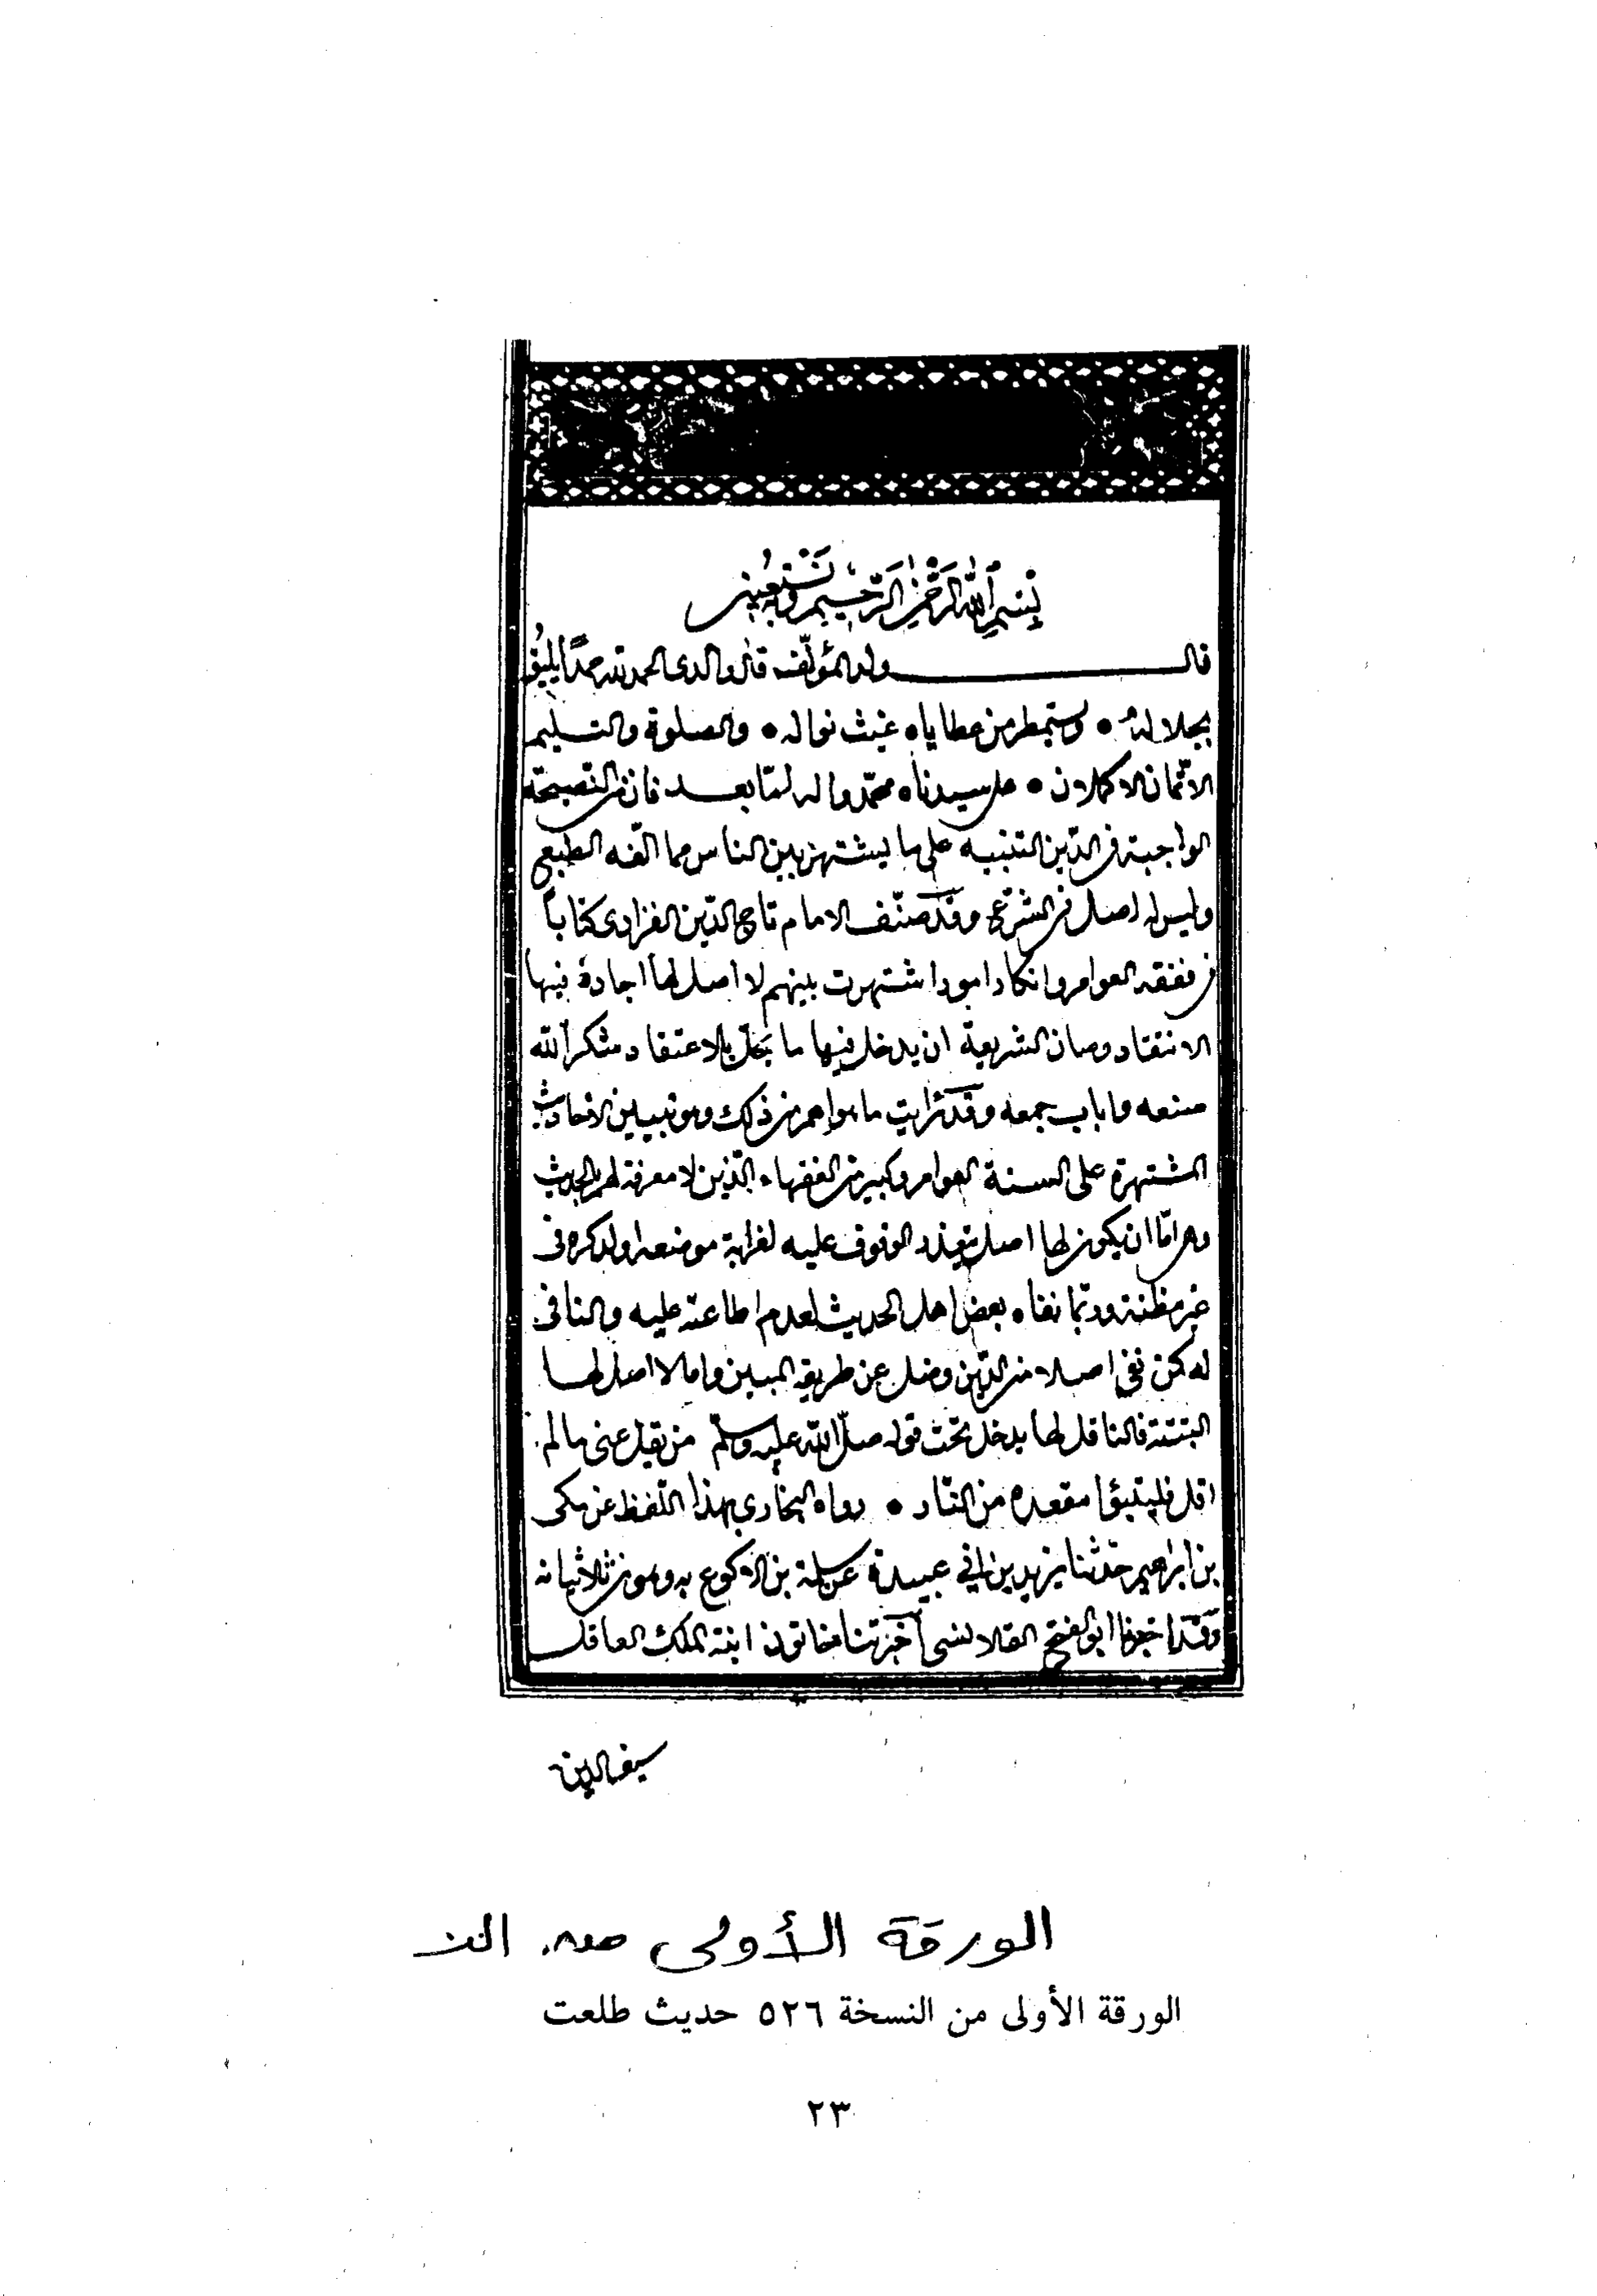 بِسْمِ اللّٰهِ الرَّحْمٰنِ الرَّحِيمِ وَبِهِ نَسْتَعِينُ
قال ولد المؤلف قال والدى الحمد لله حمدًا يليقُ
بجلاله • ويستمطر من عطاياه غيث نواله • والصلوة والتسليم
الاتمان الاكملان • على سيدناه محمد واله لما بعد فان من النصيحة
الواجبة فى الدين التنبيه على ما يشتهر بين الناس مما الفه الطبع
وليس له اصل فى الشرع وقد صنف الامام تاج الدين الفزارى كتابا
فى فقه العوام وانكار امور اشتهرت بينهم لا اصل لها اجاد فيها
الانتقاد وصان الشريعة ان يدخل فيها ما يخل بالاعتقاد شكر الله
صنعه واثاب جمعه وقد رايت ما هو اهم من ذلك وهو تبيين الاحاديث
المشتهرة على السنة العوام وكثير من الفقهاء الذين لا معرفة لهم بالحديث
وهى اما ان يكون لها اصل يتعذر الوقوف عليه لغرابة موضعه اولذكره فى
غير مظنته وربما نفاه بعض اهل الحديث لعدم اطاعته عليه والنافى
له كمن نفى اصلا من الدين وضل عن طريقه المبين واما لا اصل لها
البتتة فالناقل لها يدخل تحت قوله صلى الله عليه وسلم من يقل عنى مالم
اقل فليتبوأ مقعده من النار • رواه البخارى بهذا اللفظ عن مكى
بن ابراهيم حدثنا يزيد بن ابي عبيدة عن سلمة بن الاكوع به وهو من ثلاثياته
وقد اخبرنا ابو الفتح القلانسى أخبرتنا خاتون ابنة الملك العاقل
سيف الدين
الورقة الأولى
الورقة الأولى من النسخة ٥٢٦ حديث طلعت
٢٣